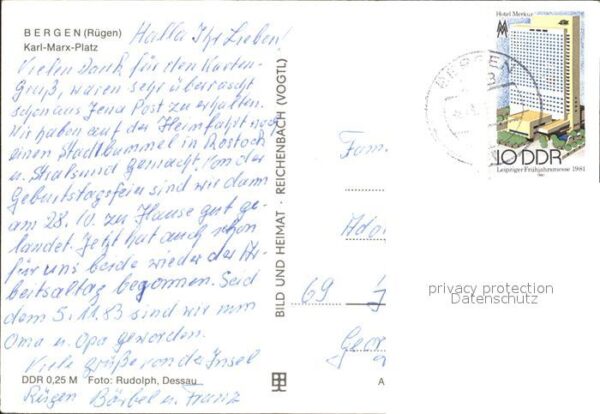 BERGEN (Rügen)
Karl-Marx-Platz
Hallo Ihr Lieben!
Vielen Dank für den Karten-
Gruß, waren sehr überrascht
schon aus Jena Post zu erhalten.
Wir haben auf der Heimfahrt noch
einen Stadtbummel in Rostock
u. Stralsund gemacht. Von der
Geburtstagsfeier sind wir dann
am 28.10. zu Hause gut ge-
landet. Jetzt hat auch schon
für uns beide wieder der Ar-
beitsalltag begonnen. Seid
dem 5.11.83 sind wir nun
Oma u. Opa geworden.
Viele Grüße von der Insel
Rügen Bärbel u. Franz
DDR 0,25 M Foto: Rudolph, Dessau
BILD UND HEIMAT · REICHENBACH (VOGTL)
Hotel Merkur
BERGEN
10 DDR
Leipziger Frühjahrsmesse 1981
Fam.
Ado
69
Geor
A
privacy protection
Datenschutz